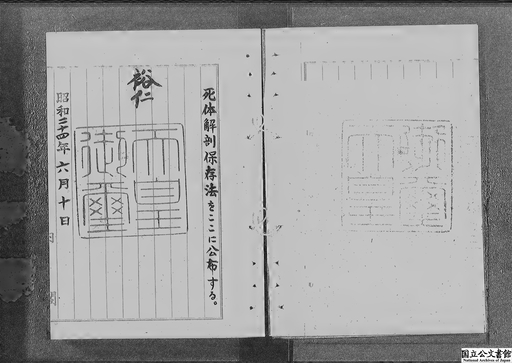 死体解剖保存法をここに公布する。
裕仁
天皇
御璽
昭和二十四年六月十日
内
閣
国立公文書館
National Archives of Japan